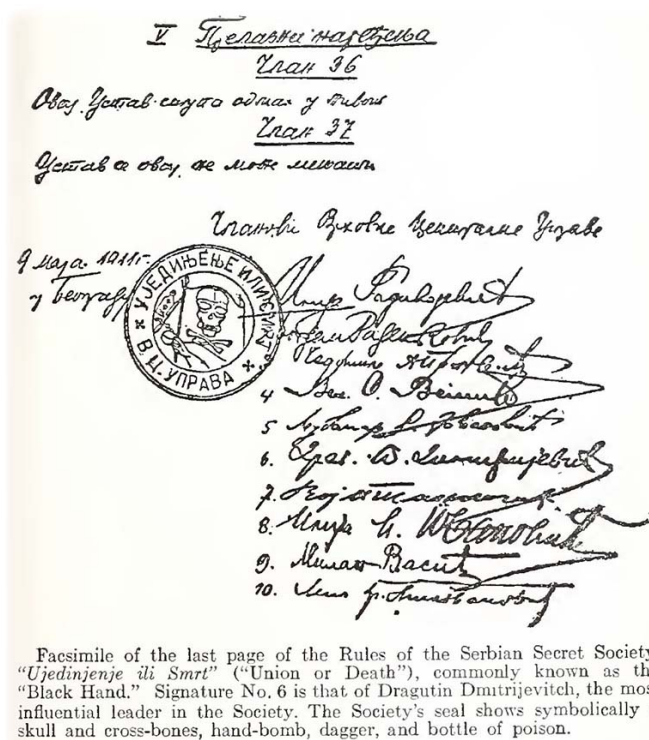 V Прелазна наређења
Члан 36
Овај Устав ступа одмах у живот
Члан 37
Устав се овај не може мењати
Чланови Врховне Централне Управе
9 маја 1911 г.
у Београду
УЈЕДИЊЕЊЕ ИЛИ СМРТ
В. Ц. УПРАВА
Илија Радивојевић
4 Вел. С. Вемић
5
6. Драг. Т. Димитријевић
7.
8. Илија
9. Милан Васић
10.
Facsimile of the last page of the Rules of the Serbian Secret Society
"Ujedinjenje ili Smrt" ("Union or Death"), commonly known as th
"Black Hand." Signature No. 6 is that of Dragutin Dmitrijevitch, the mos
influential leader in the Society. The Society's seal shows symbolically
skull and cross-bones, hand-bomb, dagger, and bottle of poison.